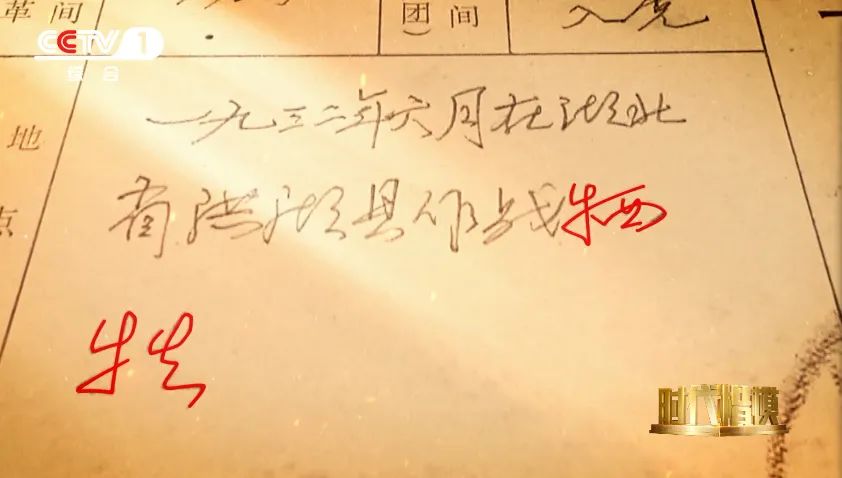 革间
团间
）
入党
CCTV 1
综合
一九三二年六月在湖北
地
省洪湖县作战牺
点
牲
时代楷模